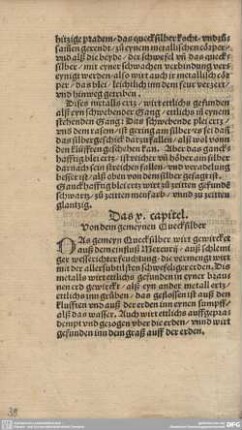 hitzige pradem/ das queckſilber kocht/ vnd zů
ſamen gerendt/ zů eynem metalliſchen cörper/
vnd alß die beyde/ der ſchwefel vñ das queck=
ſilber/ mit eyner ſchwachen verbindung vers
eynigt werden/ alſo wirt auch ir metalliſch cör
per/ das blei/ leichtlich im dem feur verzert/
vnd hinweg getriben.
Diſes metalls ertz/ wirt ettlichs gefunden
alß eyn ſchwebender Gang/ ettlichs iñ eynem
ſtehenden Gang: Das ſchwebende plei ertz/
vns dem raſen/ iſt gering am ſilber/ es ſei dañ
das ſilber geſchick darzů gefallen/ alß wol von
den klüfften geſchehen kan. Aber das ganck=
hafftig blei ertz/ iſt reicher vñ höher am ſilber
darnach ſein ſtreichen fallen/ vnd veradelung
beſſer iſt/ alß oben von dem ſilber geſagt iſt.
Ganckhafftig blei ertz wirt zů zeitten gefundē
ſchwartz/ zů zeitten menfarb/ vnnd zů zeitten
glantzig.
Das v. capitel.
Von dem gemeynen Queckſilber
DAs gemeyn Queckſilber wirt gewirckt
auß dem einfluß Mercurij/ auß ſchleimi
ger weſſerichter feuchtung/ die vermengt wirt
mit der allerſubtilſten ſchwefeliger erden. Dis
metalls wirt ettlichs gefunden in eyner braus
nen erd gewirckt/ alß eyn ander metall ertz/
ettlichs inn gräben/ das gefloſſen iſt auß den
klunfften/ vnd auß der erden inn eynen ſumpff/
alß das waſſer. Auch wirt ettlichs auffgepras
dempt vnd gezogen vber die erden/ vnnd wirt
gefunden inn dem graß auff der erden.